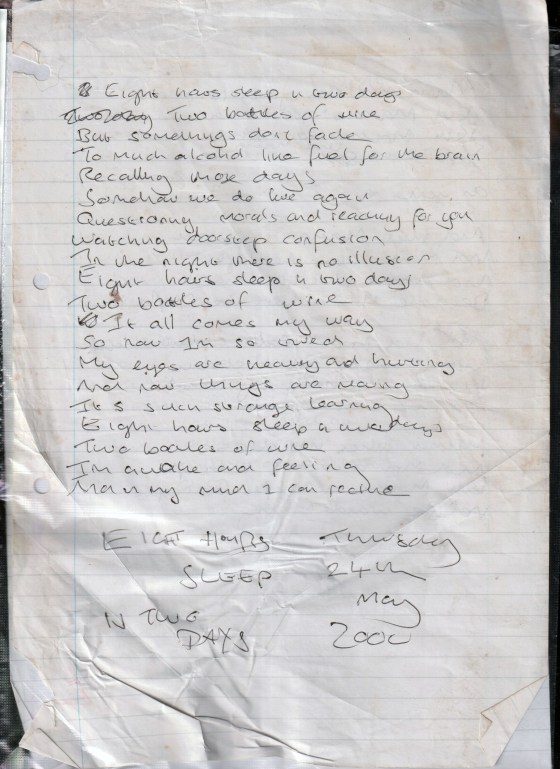 Eight hours sleep in two days
Two bottles of wine
But somethings dont fade
To much alcohol like fuel for the brain
Recalling those days
Somehow we do live again
Questioning morals and reaching for you
Watching doorstep confusion
In the night there is no illusion
Eight hours sleep in two days
Two bottles of wine
It all comes my way
So now Im so wired
My eyes are heavy and hurting
And now things are moving
Its such strange learning
Eight hours sleep in two days
Two bottles of wine
Im awake and feeling
And in my mind I can
EIGHT HOURS Thursday
SLEEP 24th
May
IN TWO
DAYS 2000